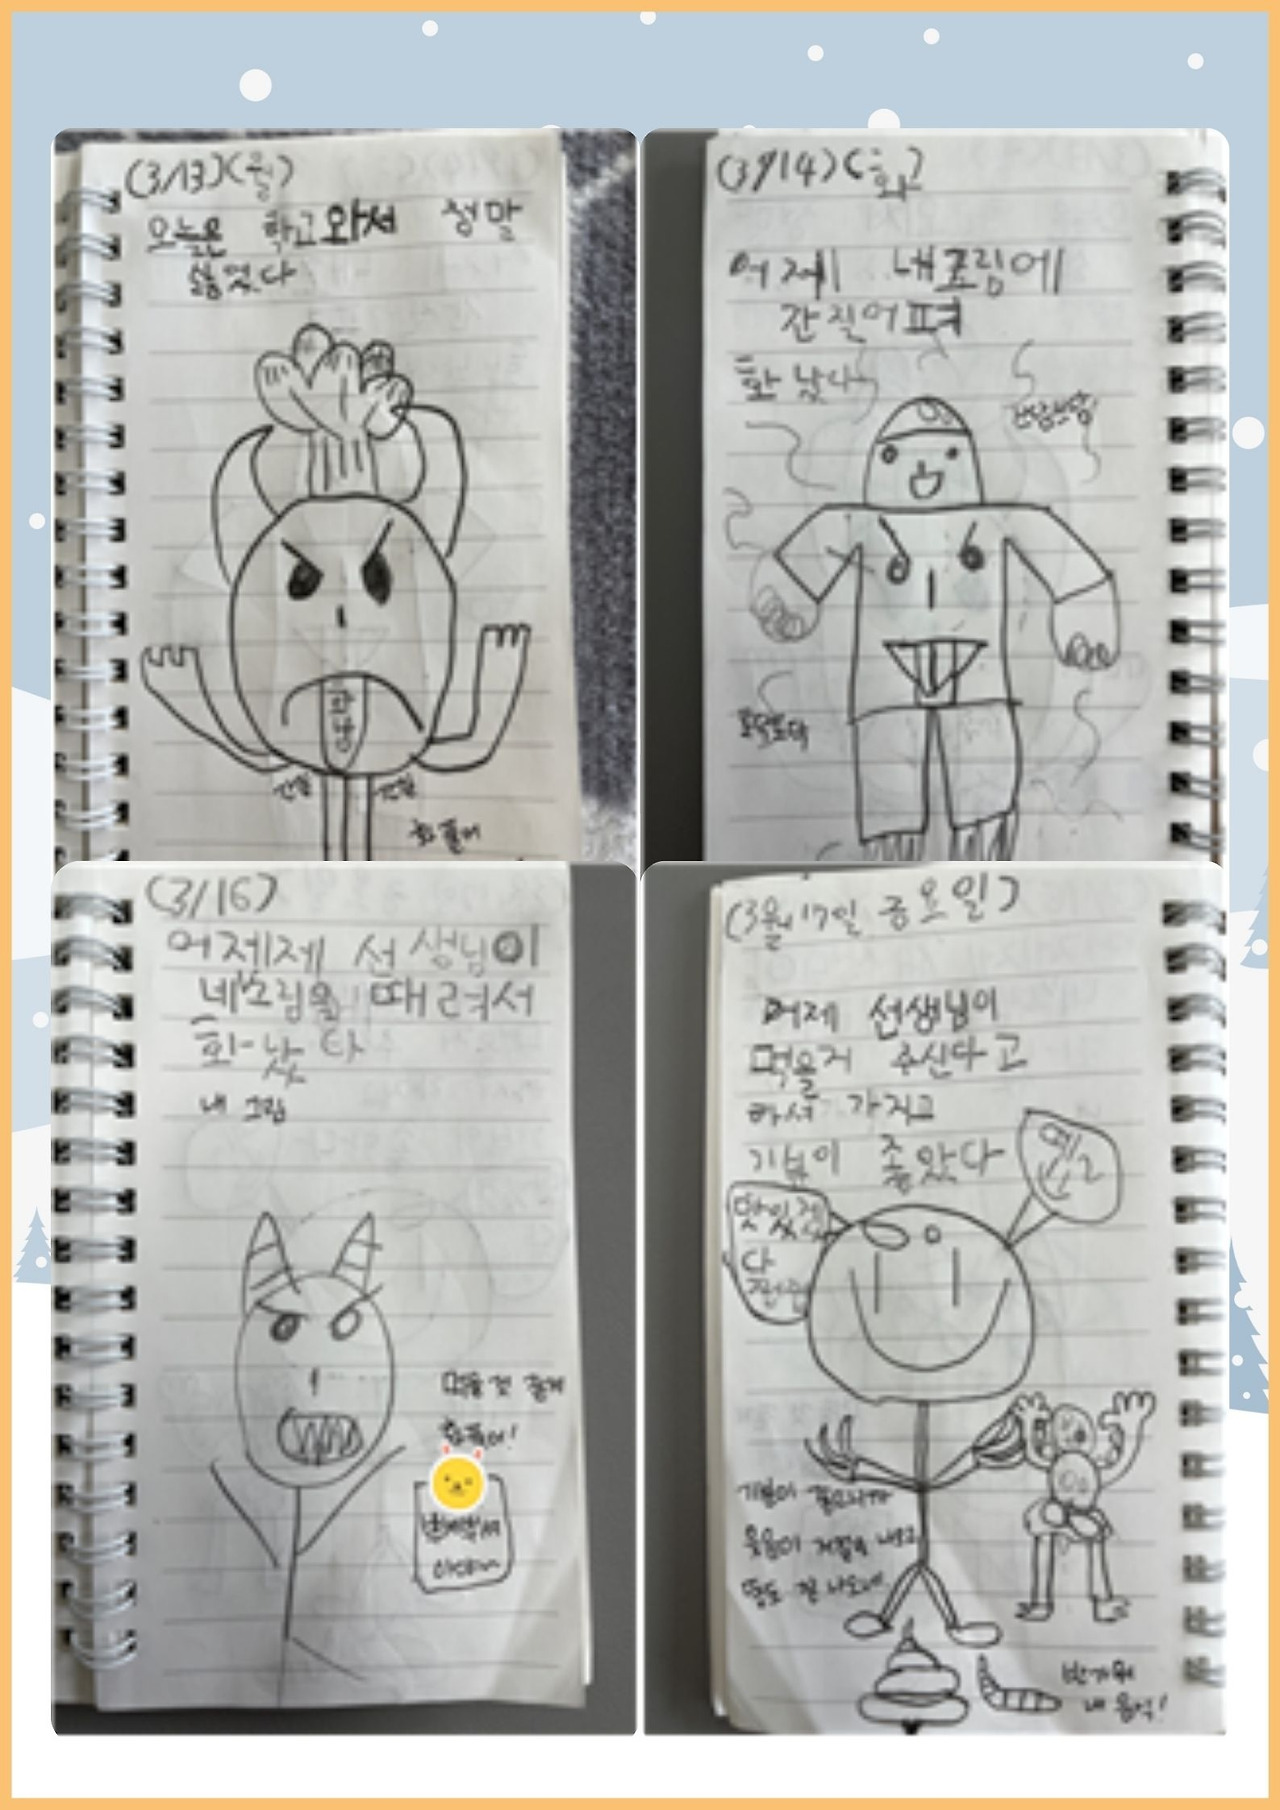 (3/13)(월)
오늘은 학교와서 정말
싫었다
간질 간질
화 풀어
(3/14)(화)
어제 내 그림에
간질어펴
화 났다
쓰담쓰담!
토닥토닥
(3/16)
어제제 선생님이
네 그림을 때려서
화났다
내 그림
먹을 것 줄게
화풀어!
(3월 17일 금요일)
어제 선생님이
먹을거 주신다고
하셔 가지고
기분이 좋았다
맛있겠
다
기분이 좋으니까
웃음이 저절로 나오고
똥도 잘 나오네
반가워
내 음식!